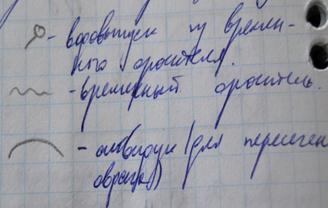 - водовыпуск из времен-
ного оросителя.
- временный ороситель.
- акведук (для пересечен
оврагов)